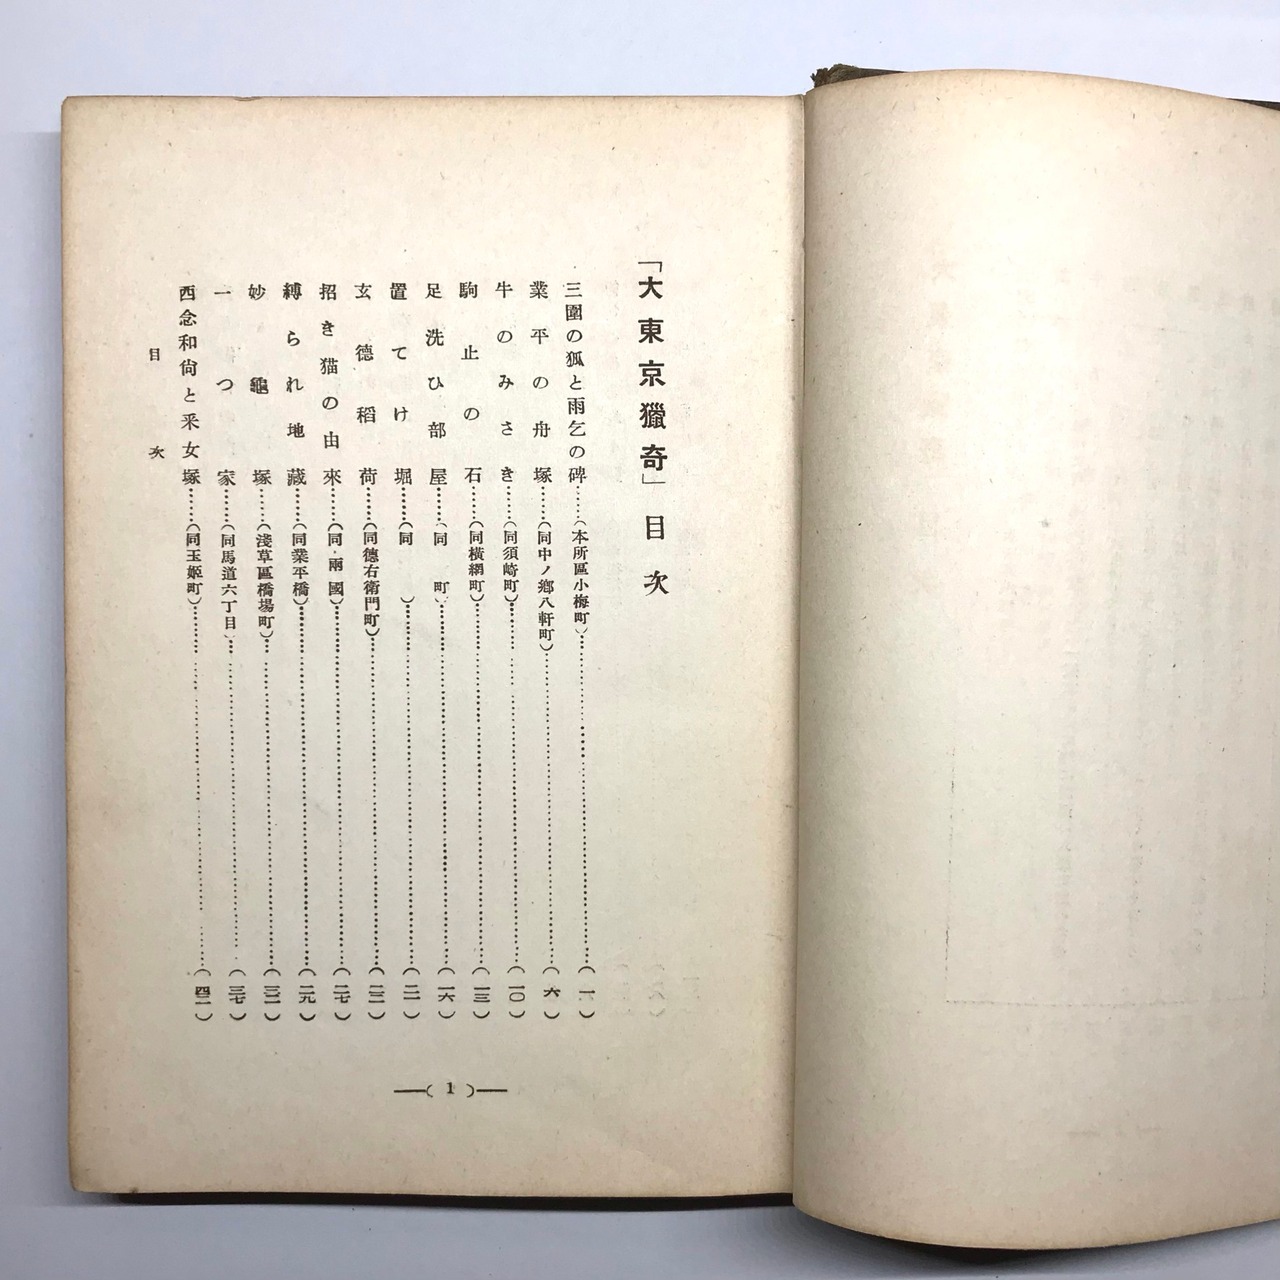 「大東京獵奇」目次
三圍の狐と雨乞の碑……(本所區小梅町)……(一)
業平の舟塚……(同中ノ鄕八軒町)……(六)
牛のみさき……(同須崎町)……(一〇)
駒止の石……(同橫網町)……(一三)
足洗ひ部屋……(同 町)……(一六)
置てけ堀……(同 )……(二一)
玄德稻荷……(同德右衞門町)……(二三)
招き猫の由來……(同・兩國)……(二七)
縛られ地藏……(同業平橋)……(二九)
妙龜塚……(淺草區橋場町)……(三二)
一つ家……(同馬道六丁目)……(三七)
西念和尙と采女塚……(同玉姬町)……(四二)
目次
—( 1 )—